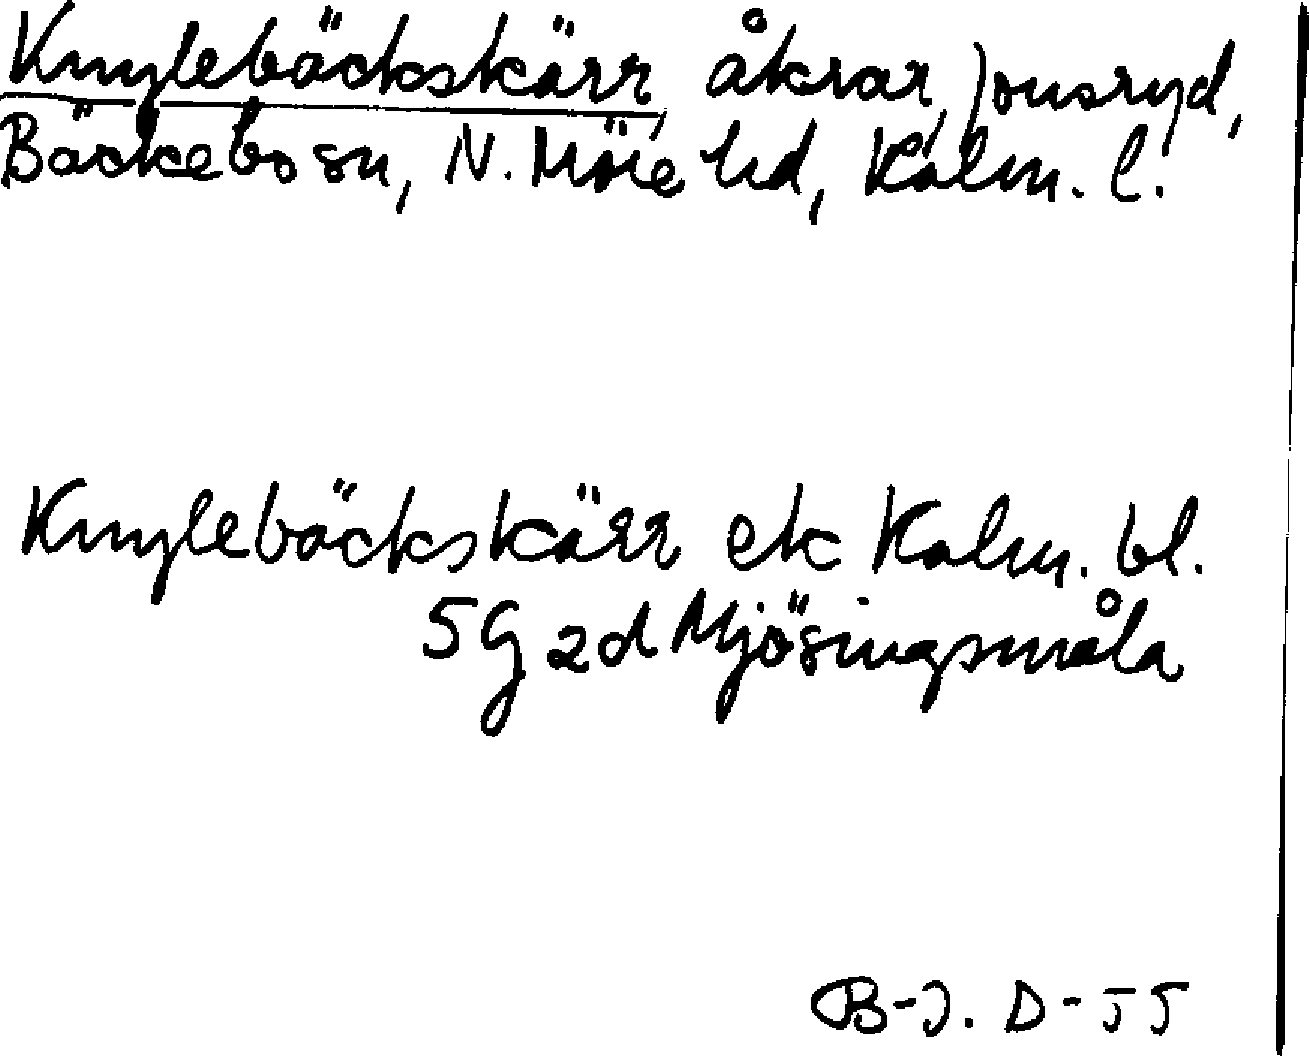 Knylebäckskärr, åkrar, Jonsryd,
Bäckebo sn, N. Möre hd, Kalm. l.
Knylebäckskärr ek Kalm. bl.
5G 2d Mjösingsmåla
B-J. D-55